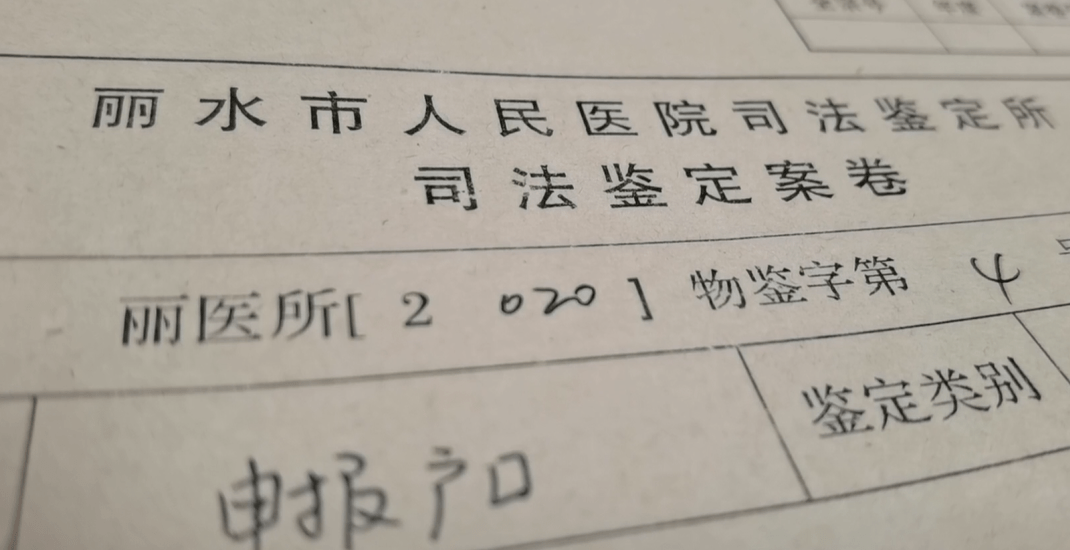 丽水市人民医院司法鉴定所
司法鉴定案卷
丽医所[2020]物鉴字第4号
申报户口
鉴定类别